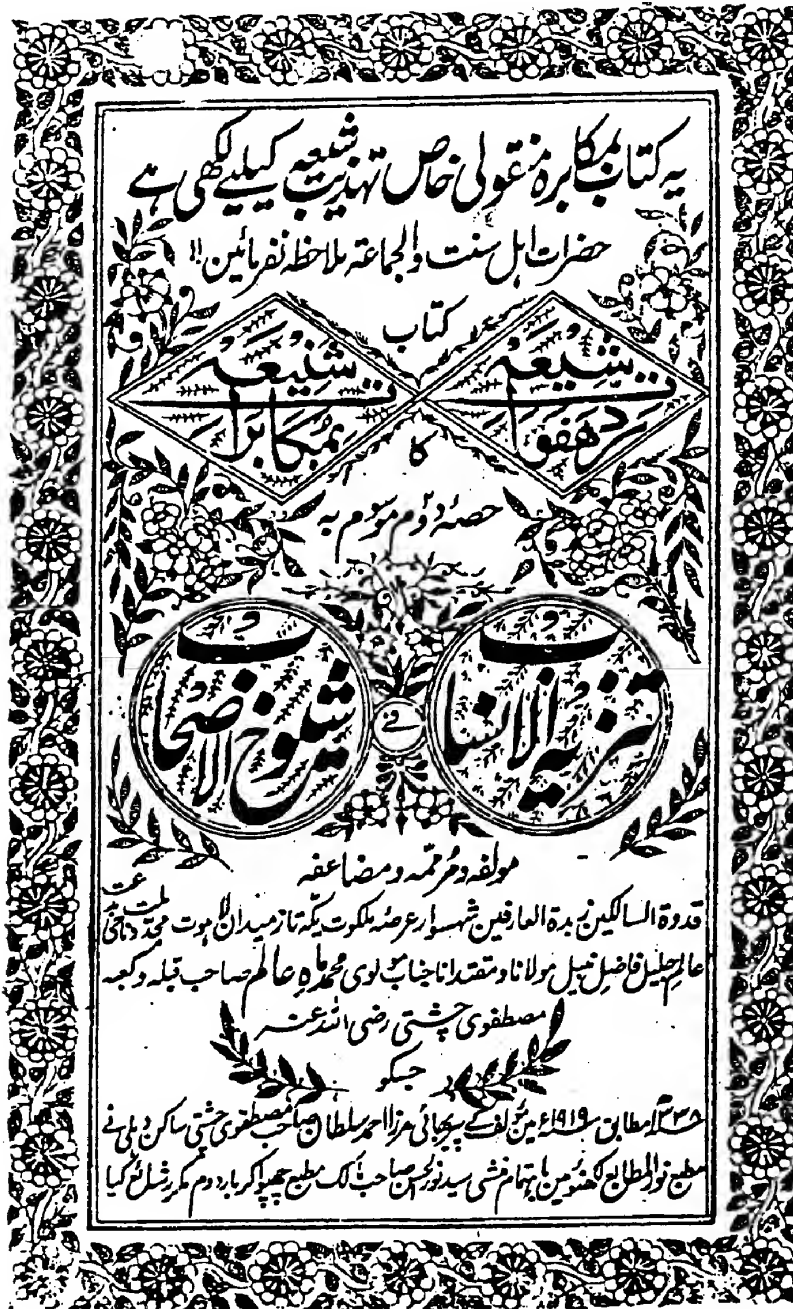 یہ کتاب بمکابرہ منقولی خاص تہذیب شیعہ کیلیے لکھی ہے
حضرات اہل سنت والجماعۃ ملاحظہ نفرمائین!!
کتاب
شیعہ
در ہفوات
شنیعہ
بمکابرات
کا
حصہ دوم موسوم بہ
تنزیہ الانساب
فے
شیوخ الاصحاب
مولفہ و مرتبہ و مضاعفہ
قدوۃ السالکین زبدۃ العارفین شہسوار عرصہ ملکوت یکہ تاز میدان لاہوت مجدد
عالم جلیل فاضل نبیل مولانا و مقتدانا جناب مولوی محمد ماہ عالم صاحب قبلہ و کعبہ
مصطفوی چشتی رضی اللہ عنہ
جسکو
۱۳۳۸ مطابق سنہ ۱۹۱۹ء مین مؤلف کے پیر بھائی مرزا احمد سلطان صاحب مصطفوی چشتی ساکن دہلی نے
مطبع نور المطابع لکھنؤ مین باہتمام منشی سید نور الحسن صاحب مالک مطبع چھپوا کر بار دوم مکرر شائع کیا